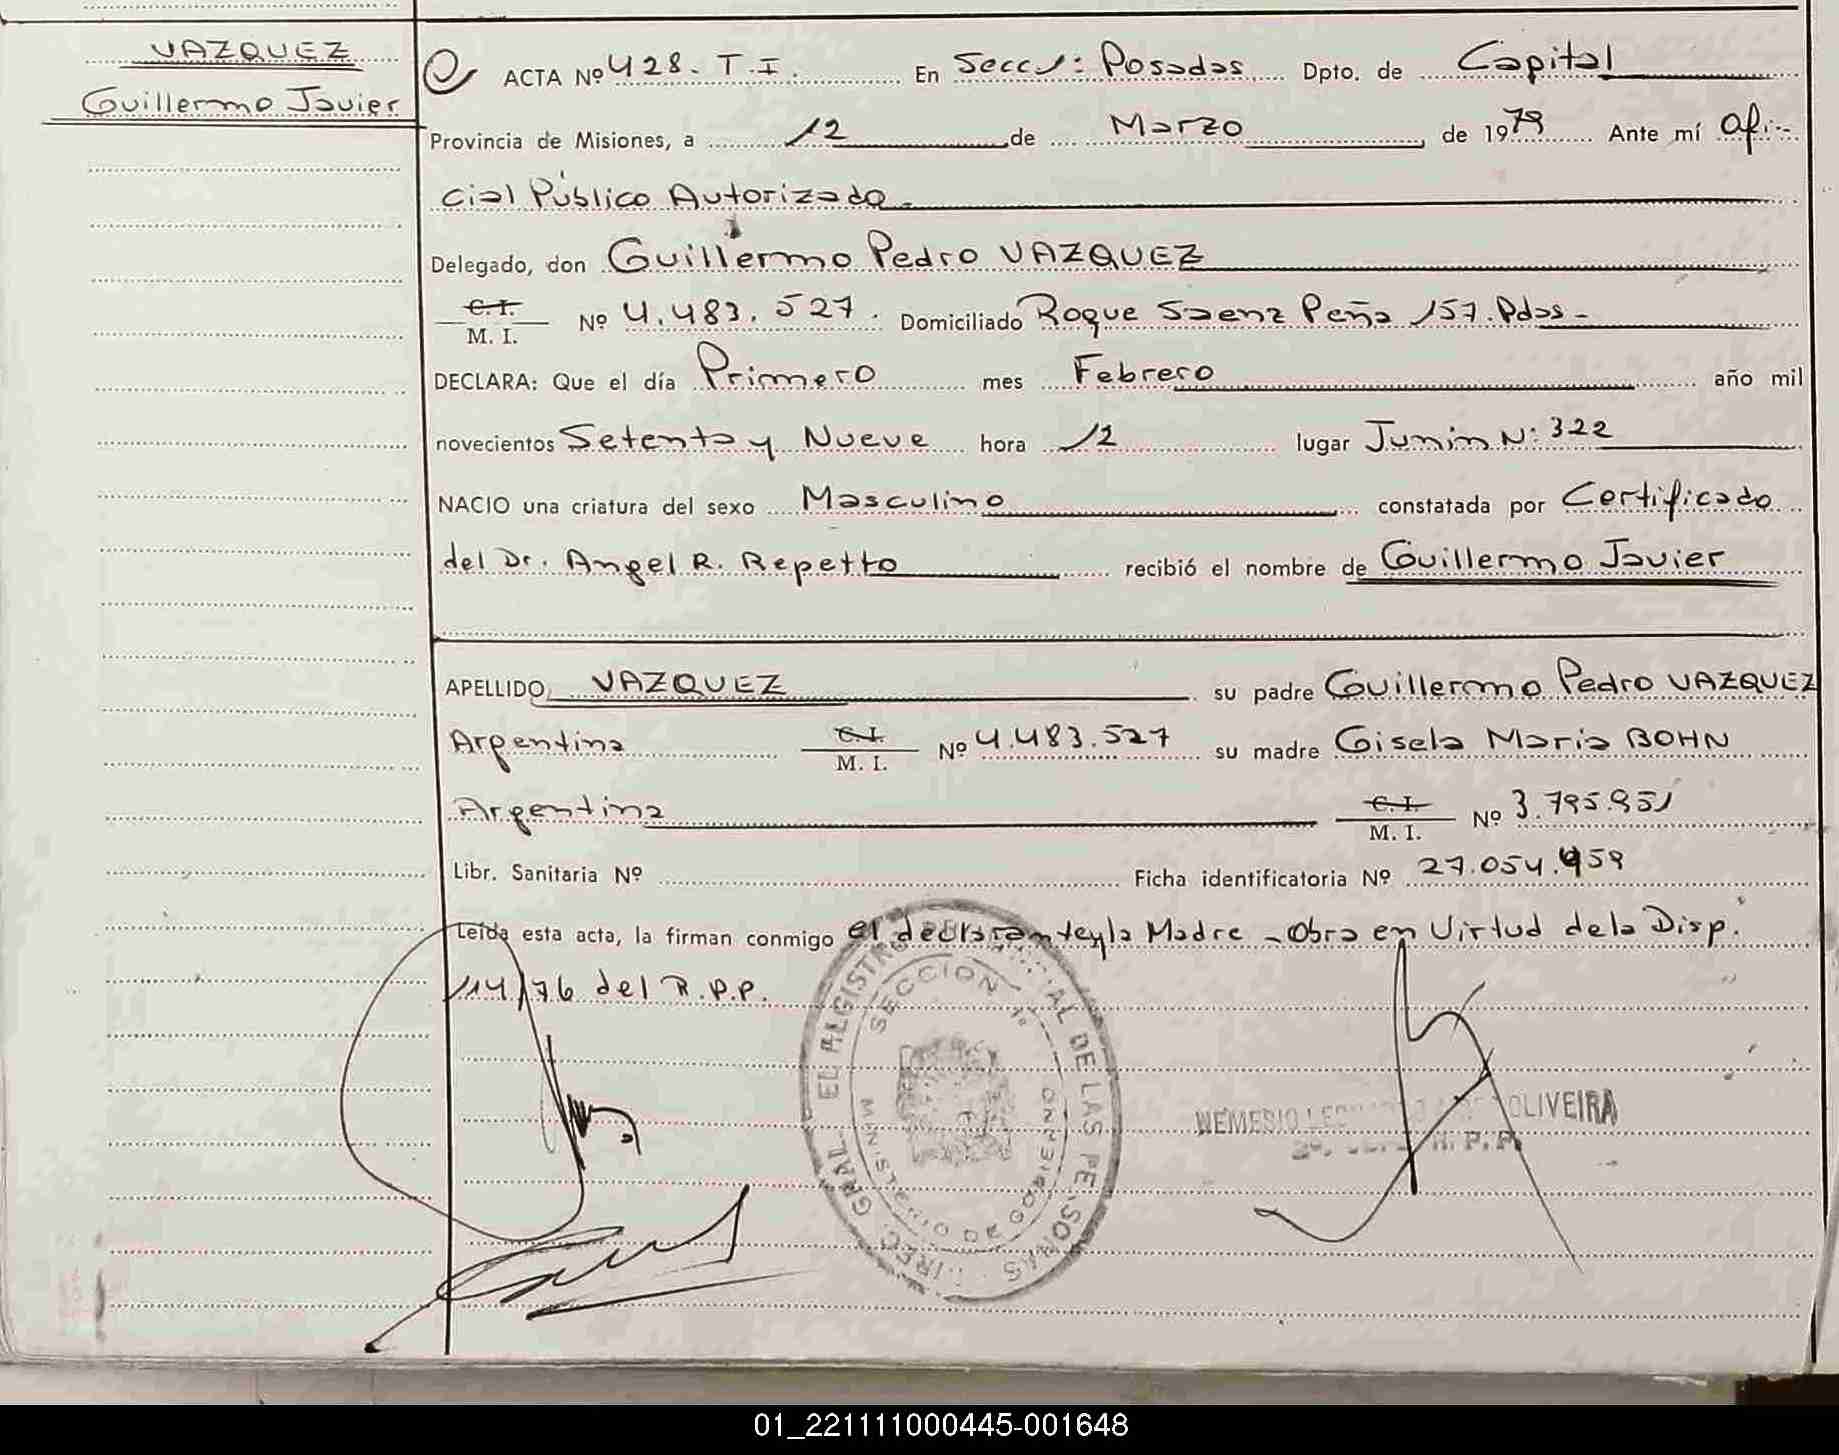 VAZQUEZ
Guillermo Javier
ACTA Nº 428. T.I. En Secc 1: Posadas Dpto. de Capital
Provincia de Misiones, a 12 de Marzo de 1979 Ante mí Ofi-
cial Público Autorizado.
Delegado, don Guillermo Pedro VAZQUEZ
C.I.
M. I. Nº 4.483.527. Domiciliado Roque Saenz Peña 157. Pdas-
DECLARA: Que el día Primero mes Febrero año mil
novecientos Setenta y Nueve hora 12 lugar Junin N: 322
NACIO una criatura del sexo Masculino constatada por Certificado
del Dr. Angel R. Repetto recibió el nombre de Guillermo Javier
APELLIDO VAZQUEZ su padre Guillermo Pedro VAZQUEZ
Argentina C.I.
M. I. Nº 4.483.527 su madre Gisela Maria BOHN
Argentina C.I.
M. I. Nº 3.795.951
Libr. Sanitaria Nº Ficha identificatoria Nº 27.054.959
Leída esta acta, la firman conmigo el declarante y la Madre - Obra en Virtud de la Disp.
14/76 del R.P.P.
SECCION
DE LAS PERSONAS
NEMESIO OLIVEIRA
R.P.P.
01_221111000445-001648